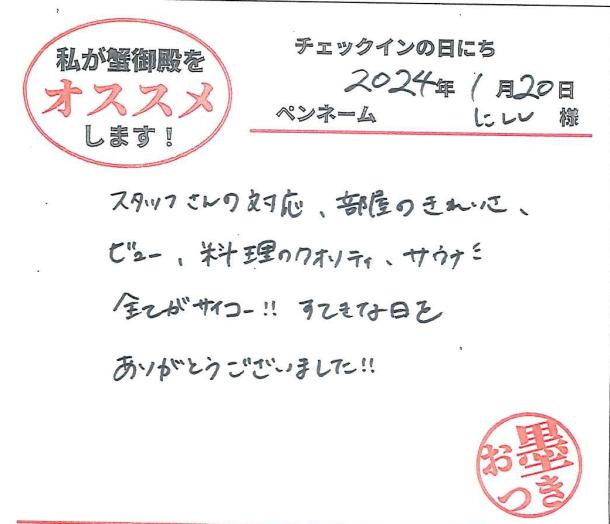 私が蟹御殿を
オススメ
します！
チェックインの日にち
2024年 1月20日
ペンネーム にしし 様
スタッフさんの対応、部屋のきれいさ、
ビュー、料理のクオリティ、サウナミ
全てがサイコー!! すてきな日を
ありがとうございました!!
お墨
つき